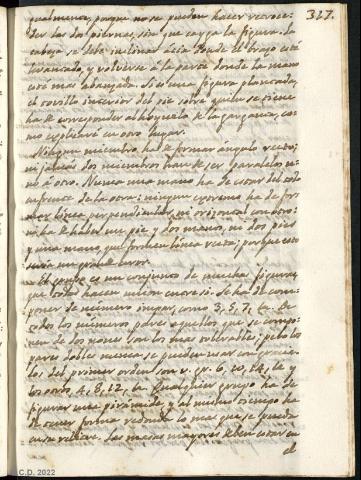 317.
igualmente, porque no se pueden hacer retroce-
der las dos piernas, sin que cayga la figura. La
cabeza se debe inclinar acia donde el brazo está
levantado, y volverse a la parte donde la mano
está mas abanzada. Si es una figura plantada,
el tovillo interior del pie sobre quien se tiene
ha de corresponder al hoyuelo de la garganta, co-
mo explicaré en otro lugar.
Ningun miembro ha de formar ángulo recto;
ni jamas dos miembros han de ser paralelos u-
no á otro. Nunca una mano ha de estar del todo
enfrente de la otra: ningun extremo ha de for-
mar linea perpendicular, ni orizontal con otro:
ni ha de haber un pie, y dos manos, ni dos pies
y una mano, que formen linea recta; porque esto
seria un grande error.
El grupo es un conjunto de muchas figuras,
que todas hacen union entre sí. Se ha de com-
poner de número impar, como 3, 5, 7, &c. De
todos los números pares aquellos que se compo-
nen de dos nones son los mas tolerables; pero los
pares dobles nunca se pueden usar con gracia.
Los del primer orden son v. gr. 6, 10, 14, &c y
los otros, 4, 8, 12, &c. Qualquier grupo ha de
figurar una pirámide, y al mismo tiempo ha
de tener forma redonda lo mas que se pueda
en su relieve. Las masas mayores deben estar en
el
C.D. 2022